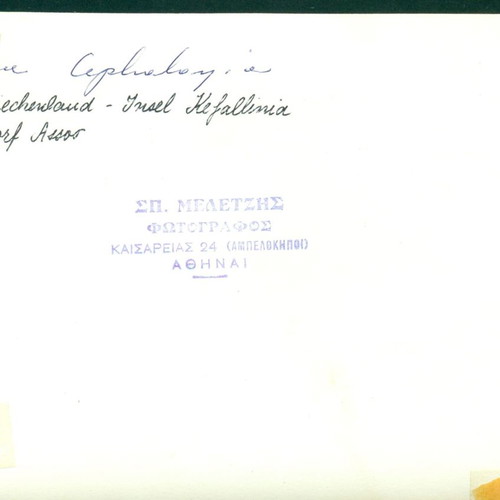 Cephalonia
iechenland - Insel Kefallinia
orf Assos
ΣΠ. ΜΕΛΕΤΖΗΣ
ΦΩΤΟΓΡΑΦΟΣ
ΚΑΙΣΑΡΕΙΑΣ 24 (ΑΜΠΕΛΟΚΗΠΟΙ)
ΑΘΗΝΑΙ